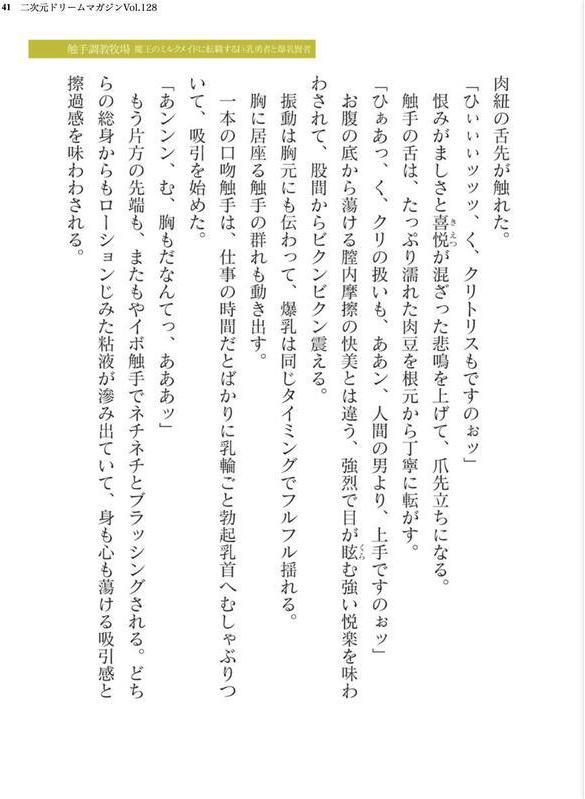 41 二次元ドリームマガジンVol.128
触手調教牧場 魔王のミルクメイドに転職する巨乳勇者と爆乳賢者
肉紐の舌先が触れた。
「ひぃぃぃッッッ、く、クリトリスもですのぉッ」
恨みがましさと喜悦が混ざった悲鳴を上げて、爪先立ちになる。
きえつ
触手の舌は、たっぷり濡れた肉豆を根元から丁寧に転がす。
「ひぁあっ、く、クリの扱いも、ああン、人間の男より、上手ですのぉッ」
お腹の底から蕩ける膣内摩擦の快美とは違う、強烈で目が眩む強い悦楽を味わ
くら
わされて、股間からビクンビクン震える。
振動は胸元にも伝わって、爆乳は同じタイミングでフルフル揺れる。
胸に居座る触手の群れも動き出す。
一本の口吻触手は、仕事の時間だとばかりに乳輪ごと勃起乳首へむしゃぶりつ
いて、吸引を始めた。
「あンンン、む、胸もだなんてっ、あああッ」
もう片方の先端も、またもやイボ触手でネチネチとブラッシングされる。どち
らの総身からもローションじみた粘液が滲み出ていて、身も心も蕩ける吸引感と
擦過感を味わわされる。